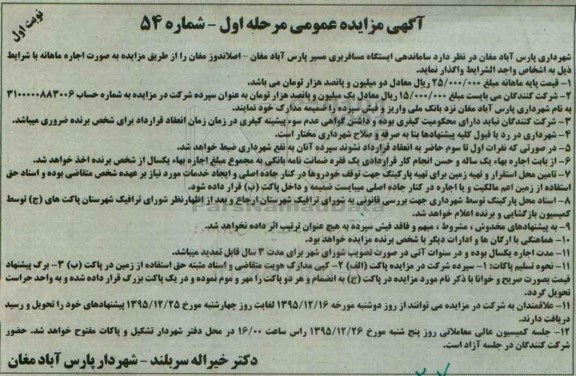 آگهی مزایده عمومی مرحله اول - شماره ۵۴
نوبت اول
شهرداری پارس آباد مغان در نظر دارد ساماندهی ایستگاه مسافربری مسیر پارس آباد مغان - اصلاندوز مغان را از طریق مزایده به صورت اجاره ماهانه با شرایط
ذیل به اشخاص واجد الشرایط واگذار نماید.
۱- قیمت پایه ماهانه مبلغ ۲۵/۰۰۰/۰۰۰ ریال معادل دو میلیون و پانصد هزار تومان می باشد.
۲- شرکت کنندگان می بایست مبلغ ۱۵/۰۰۰/۰۰۰ ریال معادل یک میلیون و پانصد هزار تومان به عنوان سپرده شرکت در مزایده به شماره حساب ۳۱۰۰۰۰۰۸۸۳۰۰۶
به نام شهرداری پارس آباد مغان نزد بانک ملی واریز و فیش سپرده را ضمیمه مدارک خود نمایند.
۳- شرکت کنندگان نباید دارای محکومیت کیفری بوده و داشتن گواهی عدم سوء پیشینه کیفری در زمان زمان انعقاد قرارداد برای شخص برنده ضروری میباشد.
۴- شهرداری در رد یا قبول کلیه پیشنهادها بنا به صرفه و صلاح شهرداری مختار است.
۵- در صورتی که نفرات اول تا سوم حاضر به انعقاد قرارداد نشوند سپرده آنان به نفع شهرداری ضبط خواهد شد.
۶- از بابت اجاره بهاء یک ساله و حسن انجام کار قراردادی یک فقره ضمانت نامه بانکی به مجموع مبلغ اجاره بهاء یکسال از شخص برنده اخذ خواهد شد.
۷- تامین محل استقرار و تهیه زمین برای تهیه پارکینگ جهت توقف خودروها در کنار جاده اصلی و ایجاد خدمات مورد نیاز بر عهده شخص متقاضی بوده و اسناد حق
استفاده از زمین اعم مالکیت و یا اجاره در کنار جاده اصلی میبایست ضمیمه و داخل پاکت (ب) قرار داده شود.
۸- اسناد محل پارکینگ توسط شهرداری جهت بررسی قانونی به شورای ترافیک شهرستان ارجاع و بعد از اظهارنظر شورای ترافیک شهرستان پاکت های (ج) توسط
کمیسیون بازگشایی و برنده اعلام خواهد شد.
۹- به پیشنهادهای مخدوش ، مشروط ، مبهم و فاقد فیش سپرده به هیچ عنوان ترتیب اثر داده نخواهد شد.
۱۰- هماهنگی با ارگان ها و ادارات دیگر با شخص برنده مزایده خواهد بود.
۱۱- مدت اجاره یکسال بوده و در سنوات آتی در صورت تصویب شورای شهر برای مدت ۳ سال قابل تمدید میباشد.
۱۱- نحوه تسلیم پاکات: ۱- سپرده شرکت در مزایده پاکت (الف) ۲- کپی مدارک هویت متقاضی و اسناد مثبته حق استفاده از زمین در پاکت (ب) ۳- برگ پیشنهاد
قیمت بصورت صریح و خوانا با ذکر نام مورد مزایده در پاکت (ج) به انضمام و هر دو پاکت را مهر و موم نموده و در یک پاکت بزرگ قرار داده شده و به واحد حراست
تحویل گردد.
۱۱- علاقمندان به شرکت در مزایده می توانند از روز دوشنبه مورخه ۱۳۹۵/۱۲/۱۶ لغایت روز چهارشنبه مورخ ۱۳۹۵/۱۲/۲۵ پیشنهادهای خود را تحویل و رسید
دریافت دارند.
۱۲- جلسه کمیسیون عالی معاملاتی روز پنج شنبه مورخ ۱۳۹۵/۱۲/۲۶ راس ساعت ۱۶/۰۰ در محل دفتر شهردار تشکیل و پاکات مفتوح خواهد شد. حضور
شرکت کنندگان در جلسه آزاد است.
دکتر خیراله سربلند - شهردار پارس آباد مغان